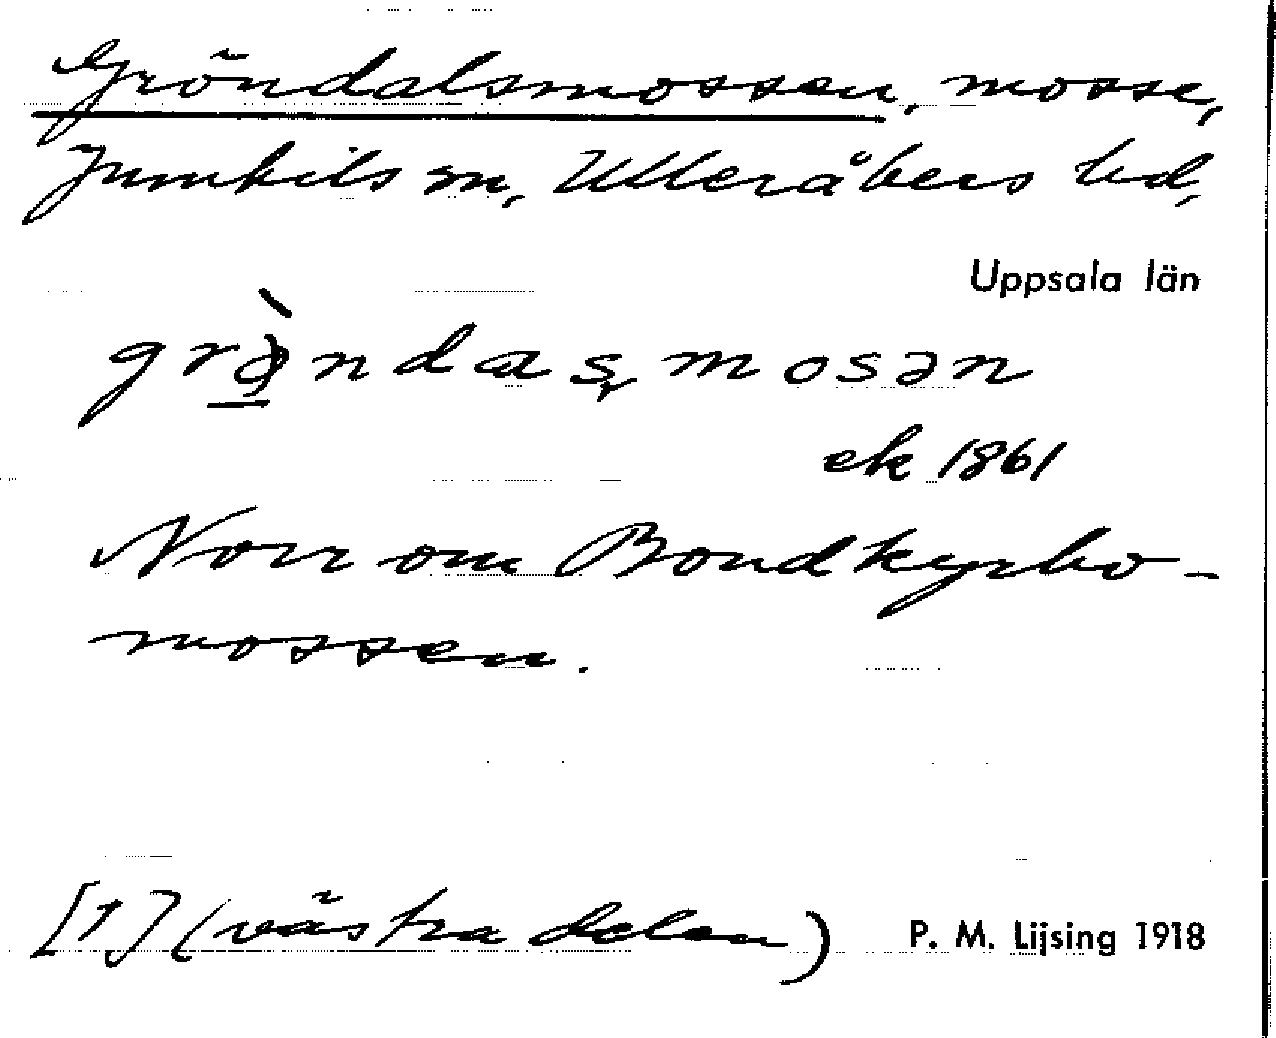 Gröndalsmossen, mosse,
Jumkils sn, Ulleråkers hd,
Uppsala län
mosən
ek 1861
Norr om Bondkyrko-
mossen.
[1] (västra delen)
P. M. Lijsing 1918